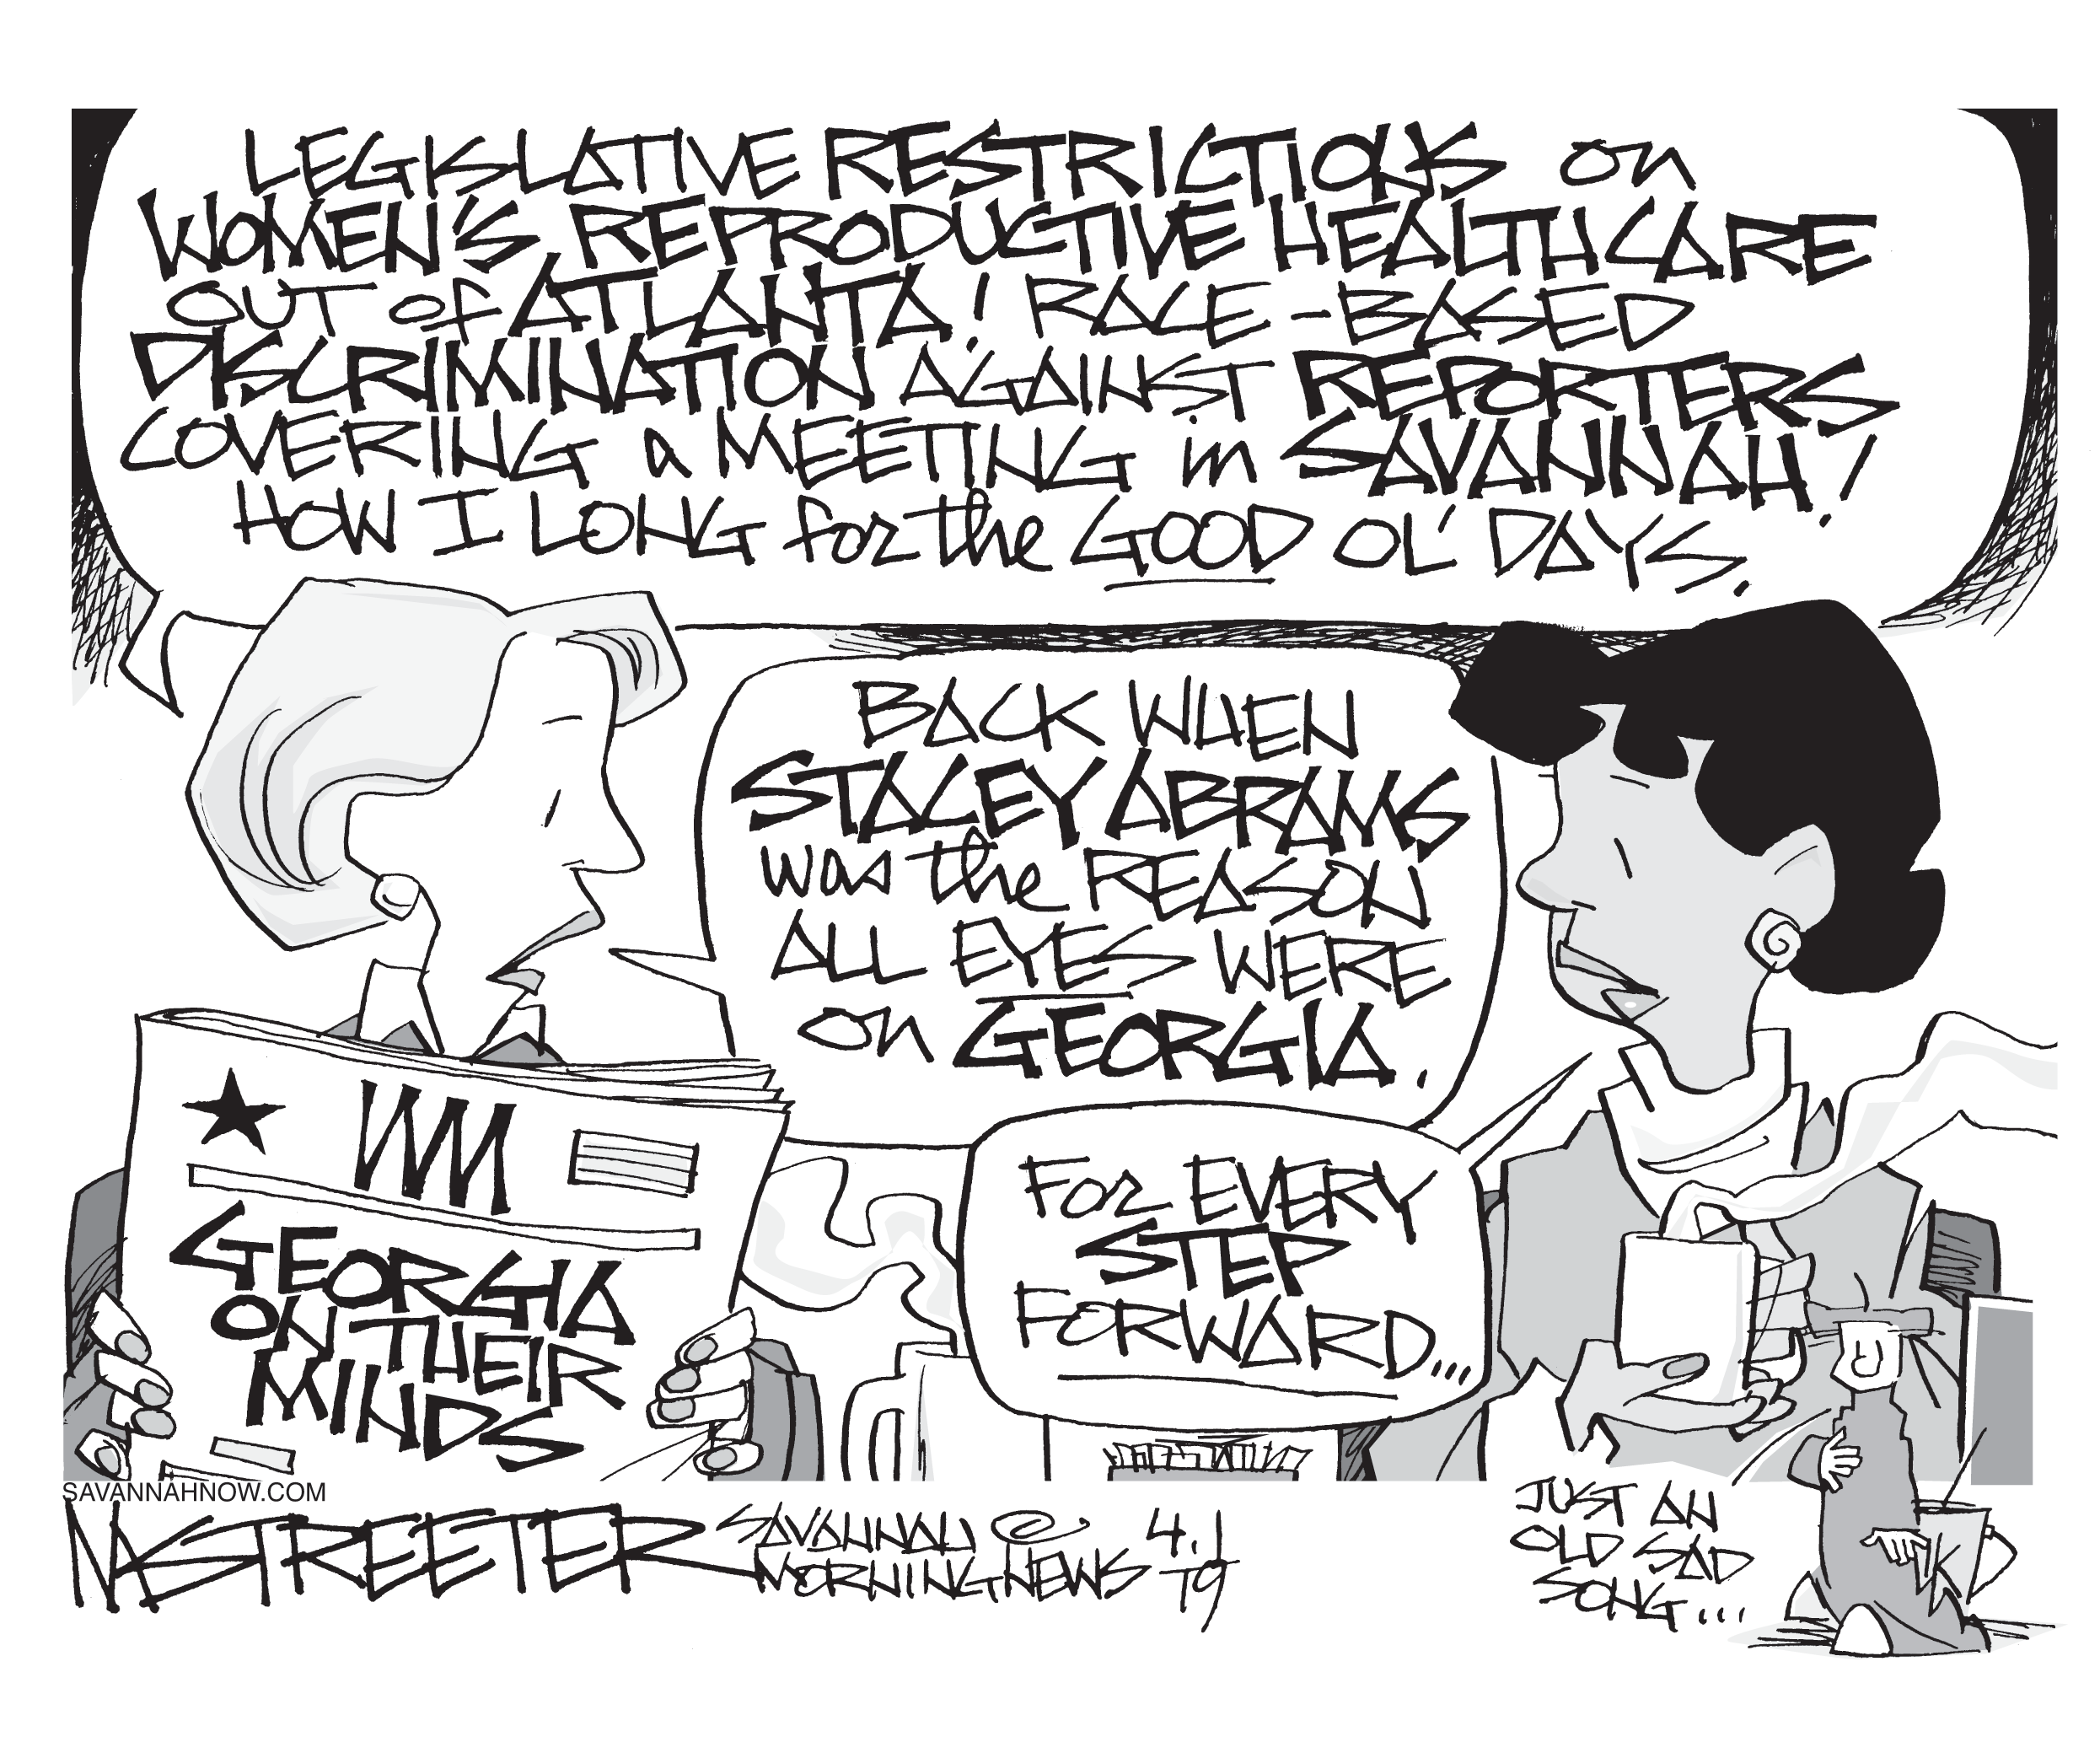 LEGISLATIVE RESTRICTIONS on
WOMEN'S REPRODUCTIVE HEALTH CARE
OUT of ATLANTA! RACE-BASED
DISCRIMINATION AGAINST REPORTERS
COVERING a MEETING in SAVANNAH!
HOW I LONG for the GOOD OL' DAYS.
BACK WHEN
STACEY ABRAMS
was the REASON
ALL EYES WERE
on GEORGIA.
FOR EVERY
STEP
FORWARD...
GEORGIA
ON THEIR
MINDS
SAVANNAHNOW.COM
STREETER
SAVANNAH
MORNING NEWS
4.1
19
JUST AN
OLD SAD
SONG...